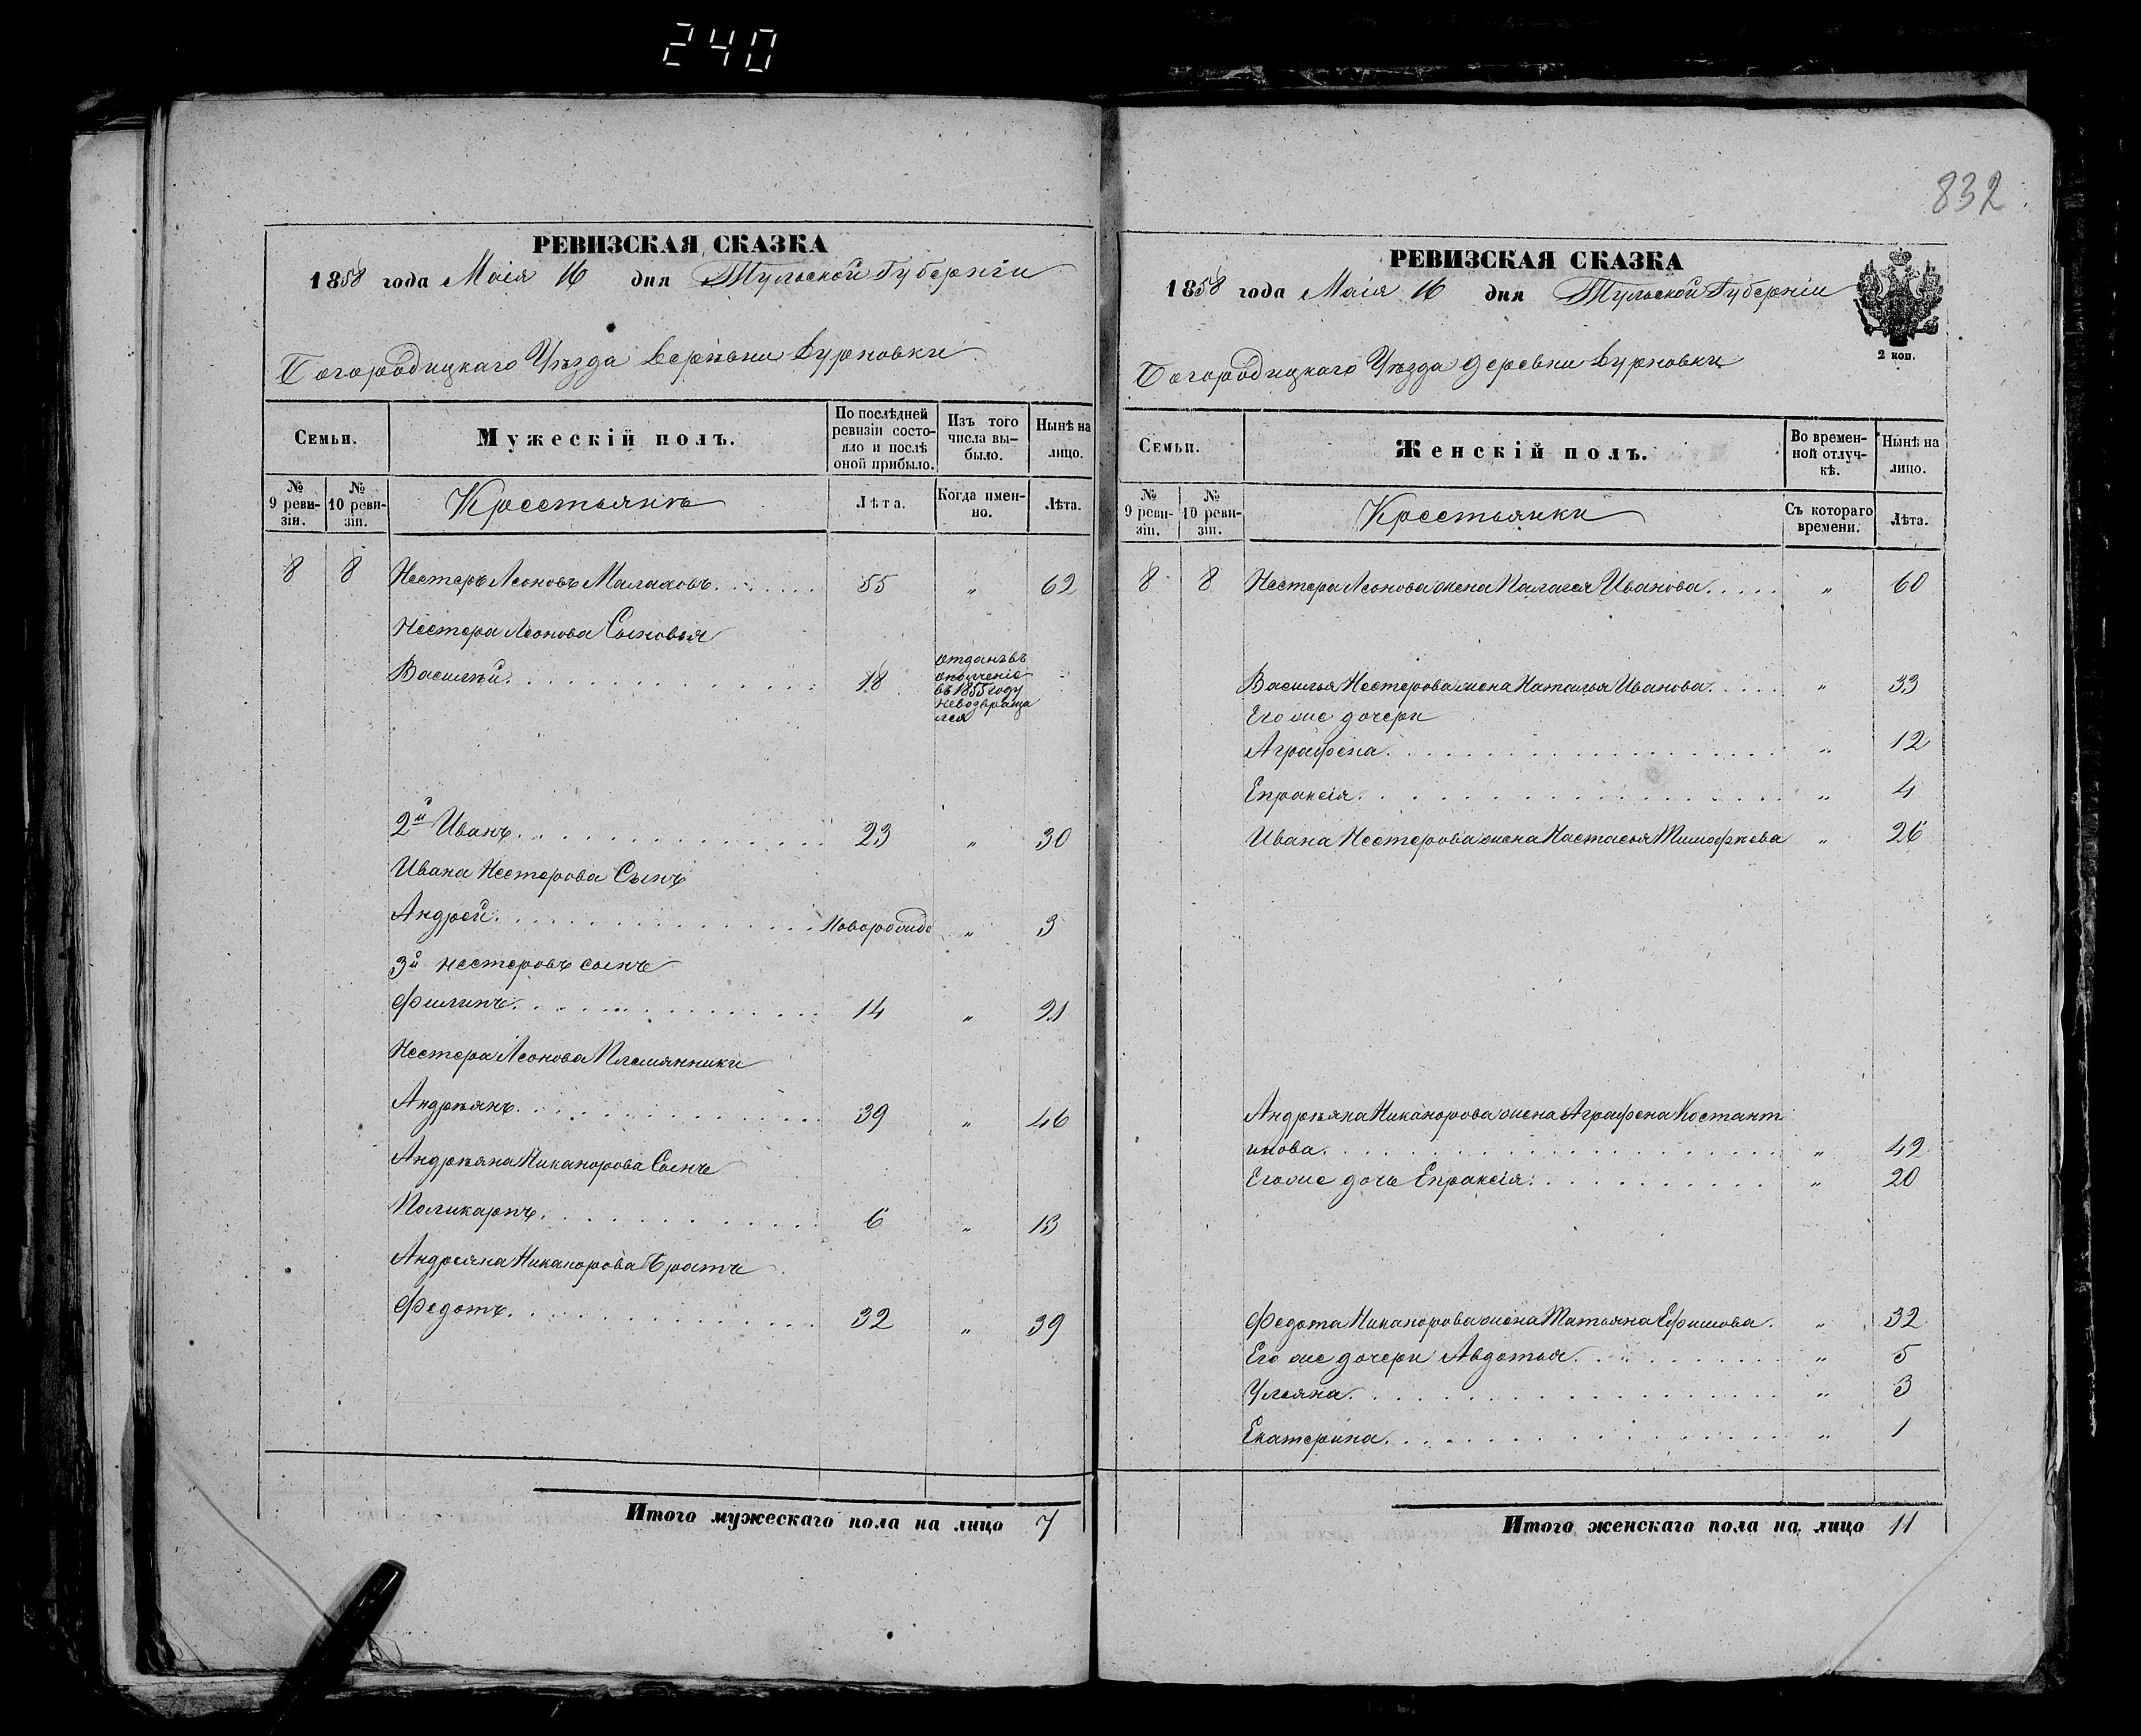 240
832
РЕВИЗСКАЯ СКАЗКА
1858 года Маія 16 дня Тульской Губерніи
Богородицкаго Уѣзда Деревни Бурновки
Семьи.
Мужескій полъ.
По послѣдней ревизіи состояло и послѣ оной прибыло.
Изъ того числа выбыло.
Нынѣ на лицо.
№ 9 ревизіи.
№ 10 ревизіи.
Крестьянъ
Лѣта.
Когда именно.
Лѣта.
8 8 Нестеръ Леоновъ Малаховъ 55 „ 62
Нестера Леонова Сыновья
Василій 18 отданъ въ
ополченіе
въ 1855 году
невозвраща
лся
2й Иванъ 23 „ 30
Ивана Нестерова Сынъ
Андрей Новорожд „ 3
3й Нестеровъ сынъ
Филипъ 14 „ 21
Нестера Леонова Племянники
Андрѣянъ 39 „ 46
Андрѣяна Никанорова Сынъ
Поликарпъ 6 „ 13
Андреяна Никанорова Братъ
Федотъ 32 „ 39
Итого мужескаго пола на лицо 7
РЕВИЗСКАЯ СКАЗКА
1858 года Маія 16 дня Тульской Губерніи
2 коп.
Богородицкаго Уѣзда деревни Бурновки
Семьи.
Женскій полъ.
Во временной отлучкѣ.
Нынѣ на лицо.
№ 9 ревизіи.
№ 10 ревизіи.
Крестьянки
Съ котораго времени.
Лѣта.
8 8 Нестера Леонова жена Палагея Иванова „ 60
Василья Нестерова жена Наталья Иванова „ 33
Его же дочери
Аграфена „ 12
Епраксія „ 4
Ивана Нестерова жена Настасья Тимофѣева „ 26
Андрѣяна Никанорова жена Аграфена Костант
инова „ 42
Его же дочь Епраксія „ 20
Федота Никанорова жена Татьяна Ефимова „ 32
Его же дочери Авдотья „ 5
Ульяна „ 3
Екатерина „ 1
Итого женскаго пола на лицо 11